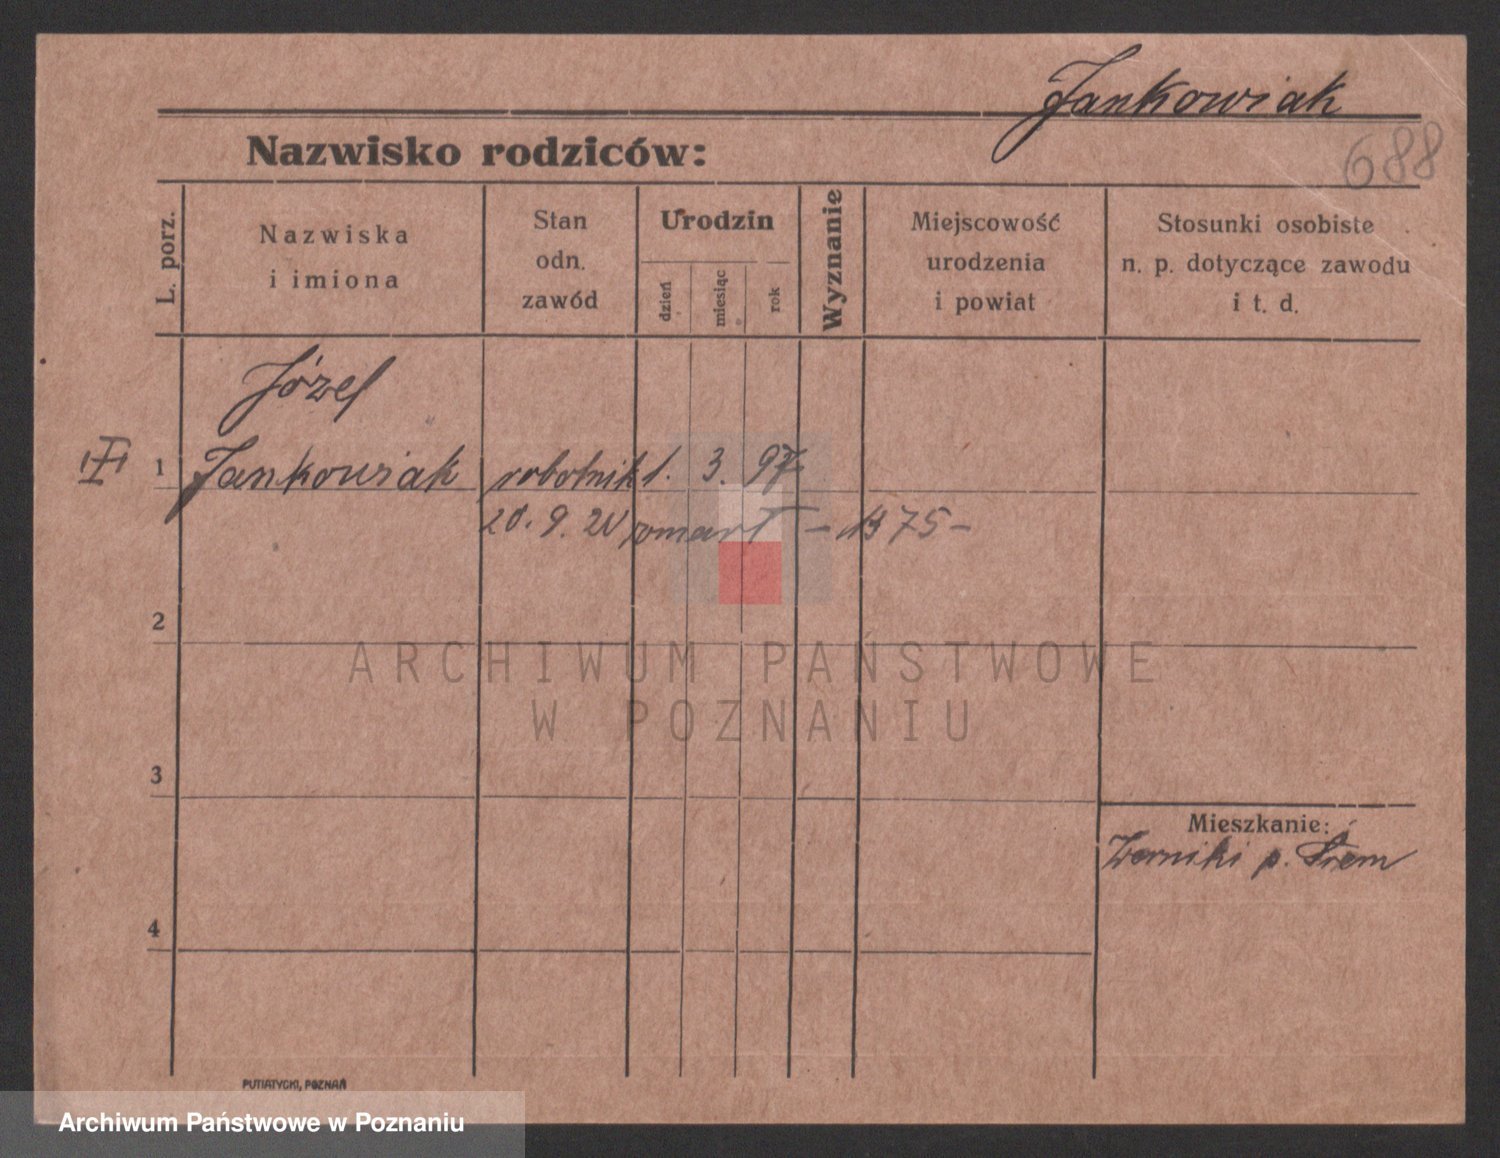 Jankowiak
688
Nazwisko rodziców:
L. porz.
Nazwiska
i imiona
Stan
odn.
zawód
Urodzin
dzień
miesiąc
rok
Wyznanie
Miejscowość
urodzenia
i powiat
Stosunki osobiste
n. p. dotyczące zawodu
i t. d.
Józef
III
1 Jankowiak robotnik 1. 3. 97
20. 9. zmarł 75 -
2
ARCHIWUM PAŃSTWOWE
W POZNANIU
3
Mieszkanie:
Zerniki p. Śrem
4
PUTIATYCKI, POZNAŃ
Archiwum Państwowe w Poznaniu